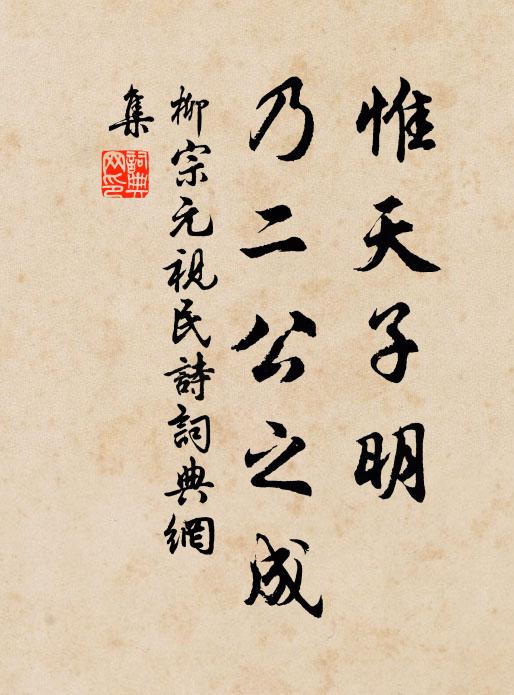 惟天子明
乃二公之成
柳宗元視民詩詞典網
集
詞典
网印